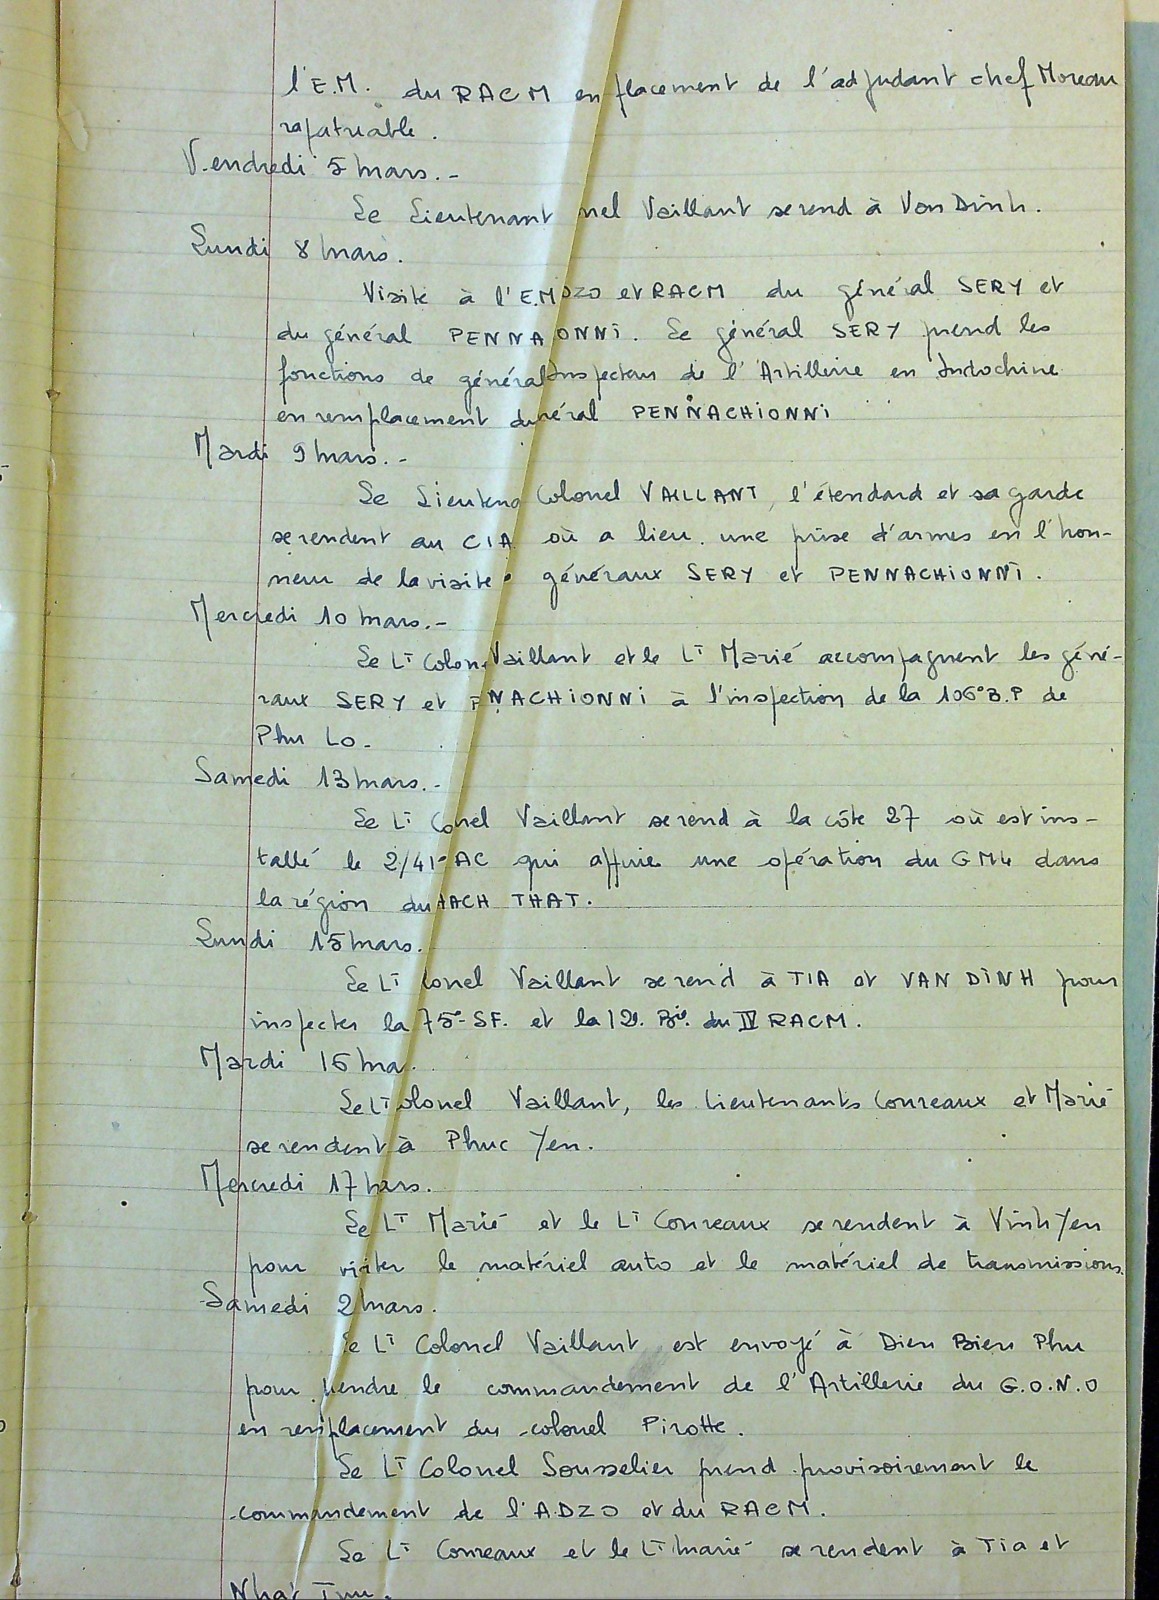 l'E.M. du RACM en placement de l'adjudant chef Moreau
rapatriable.
Vendredi 5 mars.-
Le Lieutenant nel Vaillant se rend à Van Dinh.
Lundi 8 mars.
Visite à l'E.M DZO et RACM du général SERY et
du général PENNA ONNI. Le général SERY prend les
fonctions de général Inspecteur de l'Artillerie en Indochine
en remplacement du néral PENNACHIONNI
Mardi 9 mars.-
Le Lieutena Colonel VAILLANT, l'étendard et sa garde
se rendent au CIA où a lieu une prise d'armes en l'hon-
neur de la visite généraux SERY et PENNACHIONNI.
Mercredi 10 mars.-
Le Lt Colone Vaillant et le Lt Marié accompagnent les géné-
raux SERY et PNACHIONNI à l'inspection de la 106° B.P de
Phu Lo.
Samedi 13 mars.-
Le Lt Conel Vaillant se rend à la côte 27 où est ins-
tallé le 2/41° AC qui appuie une opération du GM4 dans
la région du HACH THAT.
Lundi 15 mars.
Le Lt lonel Vaillant se rend à TIA et VAN DINH pour
inspecter la 75°-SF. et la 12e. Bie. du IV RACM.
Mardi 16 ma.
Le Lt olonel Vaillant, les Lieutenants Conreaux et Marié
se rendent à Phuc Yen.
Mercredi 17 mars.
Le Lt Marié et le Lt Conreaux se rendent à Vinh Yen
pour visiter le matériel auto et le matériel de transmissions.
Samedi 2 mars.
Le Lt Colonel Vaillant est envoyé à Dien Bien Phu
pour prendre le commandement de l'Artillerie du G.O.N.O
en remplacement du colonel Pirotte.
Le Lt Colonel Sousselier prend provisoirement le
commandement de l'ADZO et du RACM.
Le Lt Conreaux et le Lt Marié se rendent à Tia et
Nhat Tuu.